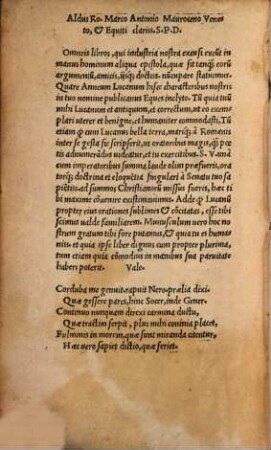 Aldus Ro. Marco Antonio Mauroceno Vene-
to, & Equiti clariss. S. P. D.
Omneis libros, qui industria nostra excusi exeunt in
manus hominum aliqua epistola, quæ sit tanq̃ eorũ
argumentũ, amicis, uisq; doctis nuncupare statuimus.
Quare Annæum Lucanum hisce charactéribus nostris
in tuo nomine publicamus Eques inclyte. Tũ quia tuũ mi
hi Lucanum et antiquum, et correctum, ut eo exem-
plari uterer et benigne, et humaniter commodasti, Tũ
etiam q̃ cum Lucanus bella terra, mariq; à Romanis
inter se gesta sic scripserit, ut oratoribus magis, q̃ poë
tis adnumerãdus uideatur, et tu exercitibus S. V. hac
tenus imperatoribus summa laude olim præfueris, ora
toriq; doctrina et eloquẽtia singulari à Senatu tuo sa
pissime ad summos Christianorũ missus fueris, hæc ti
bi maxime cõuenire existimauimus. Adde q̃ Lucanũ
propter eius orationum sublimes & cõcitatas, esse tibi
scimus ualde familiarem. Munusculum uero hoc no-
strum gratum tibi fore putamus, & quia tu es huma-
niss. et quia ipse liber dignus cum propter plurima,
tum etiam quia cõmodius in manibus sua paruitate
haberi poterit. Vale.
Corduba me genuit, rapuit Nero, prælia dixi.
Quæ gessere pares, hinc Socer, inde Gener.
Continuo nunquam direxi carmina ductu,
Quæ tractim serpit, plus mihi comma placet,
Fulminis in morem, quæ sunt miranda citentur,
Hæc uero sapiet dictio, quæ feriet.